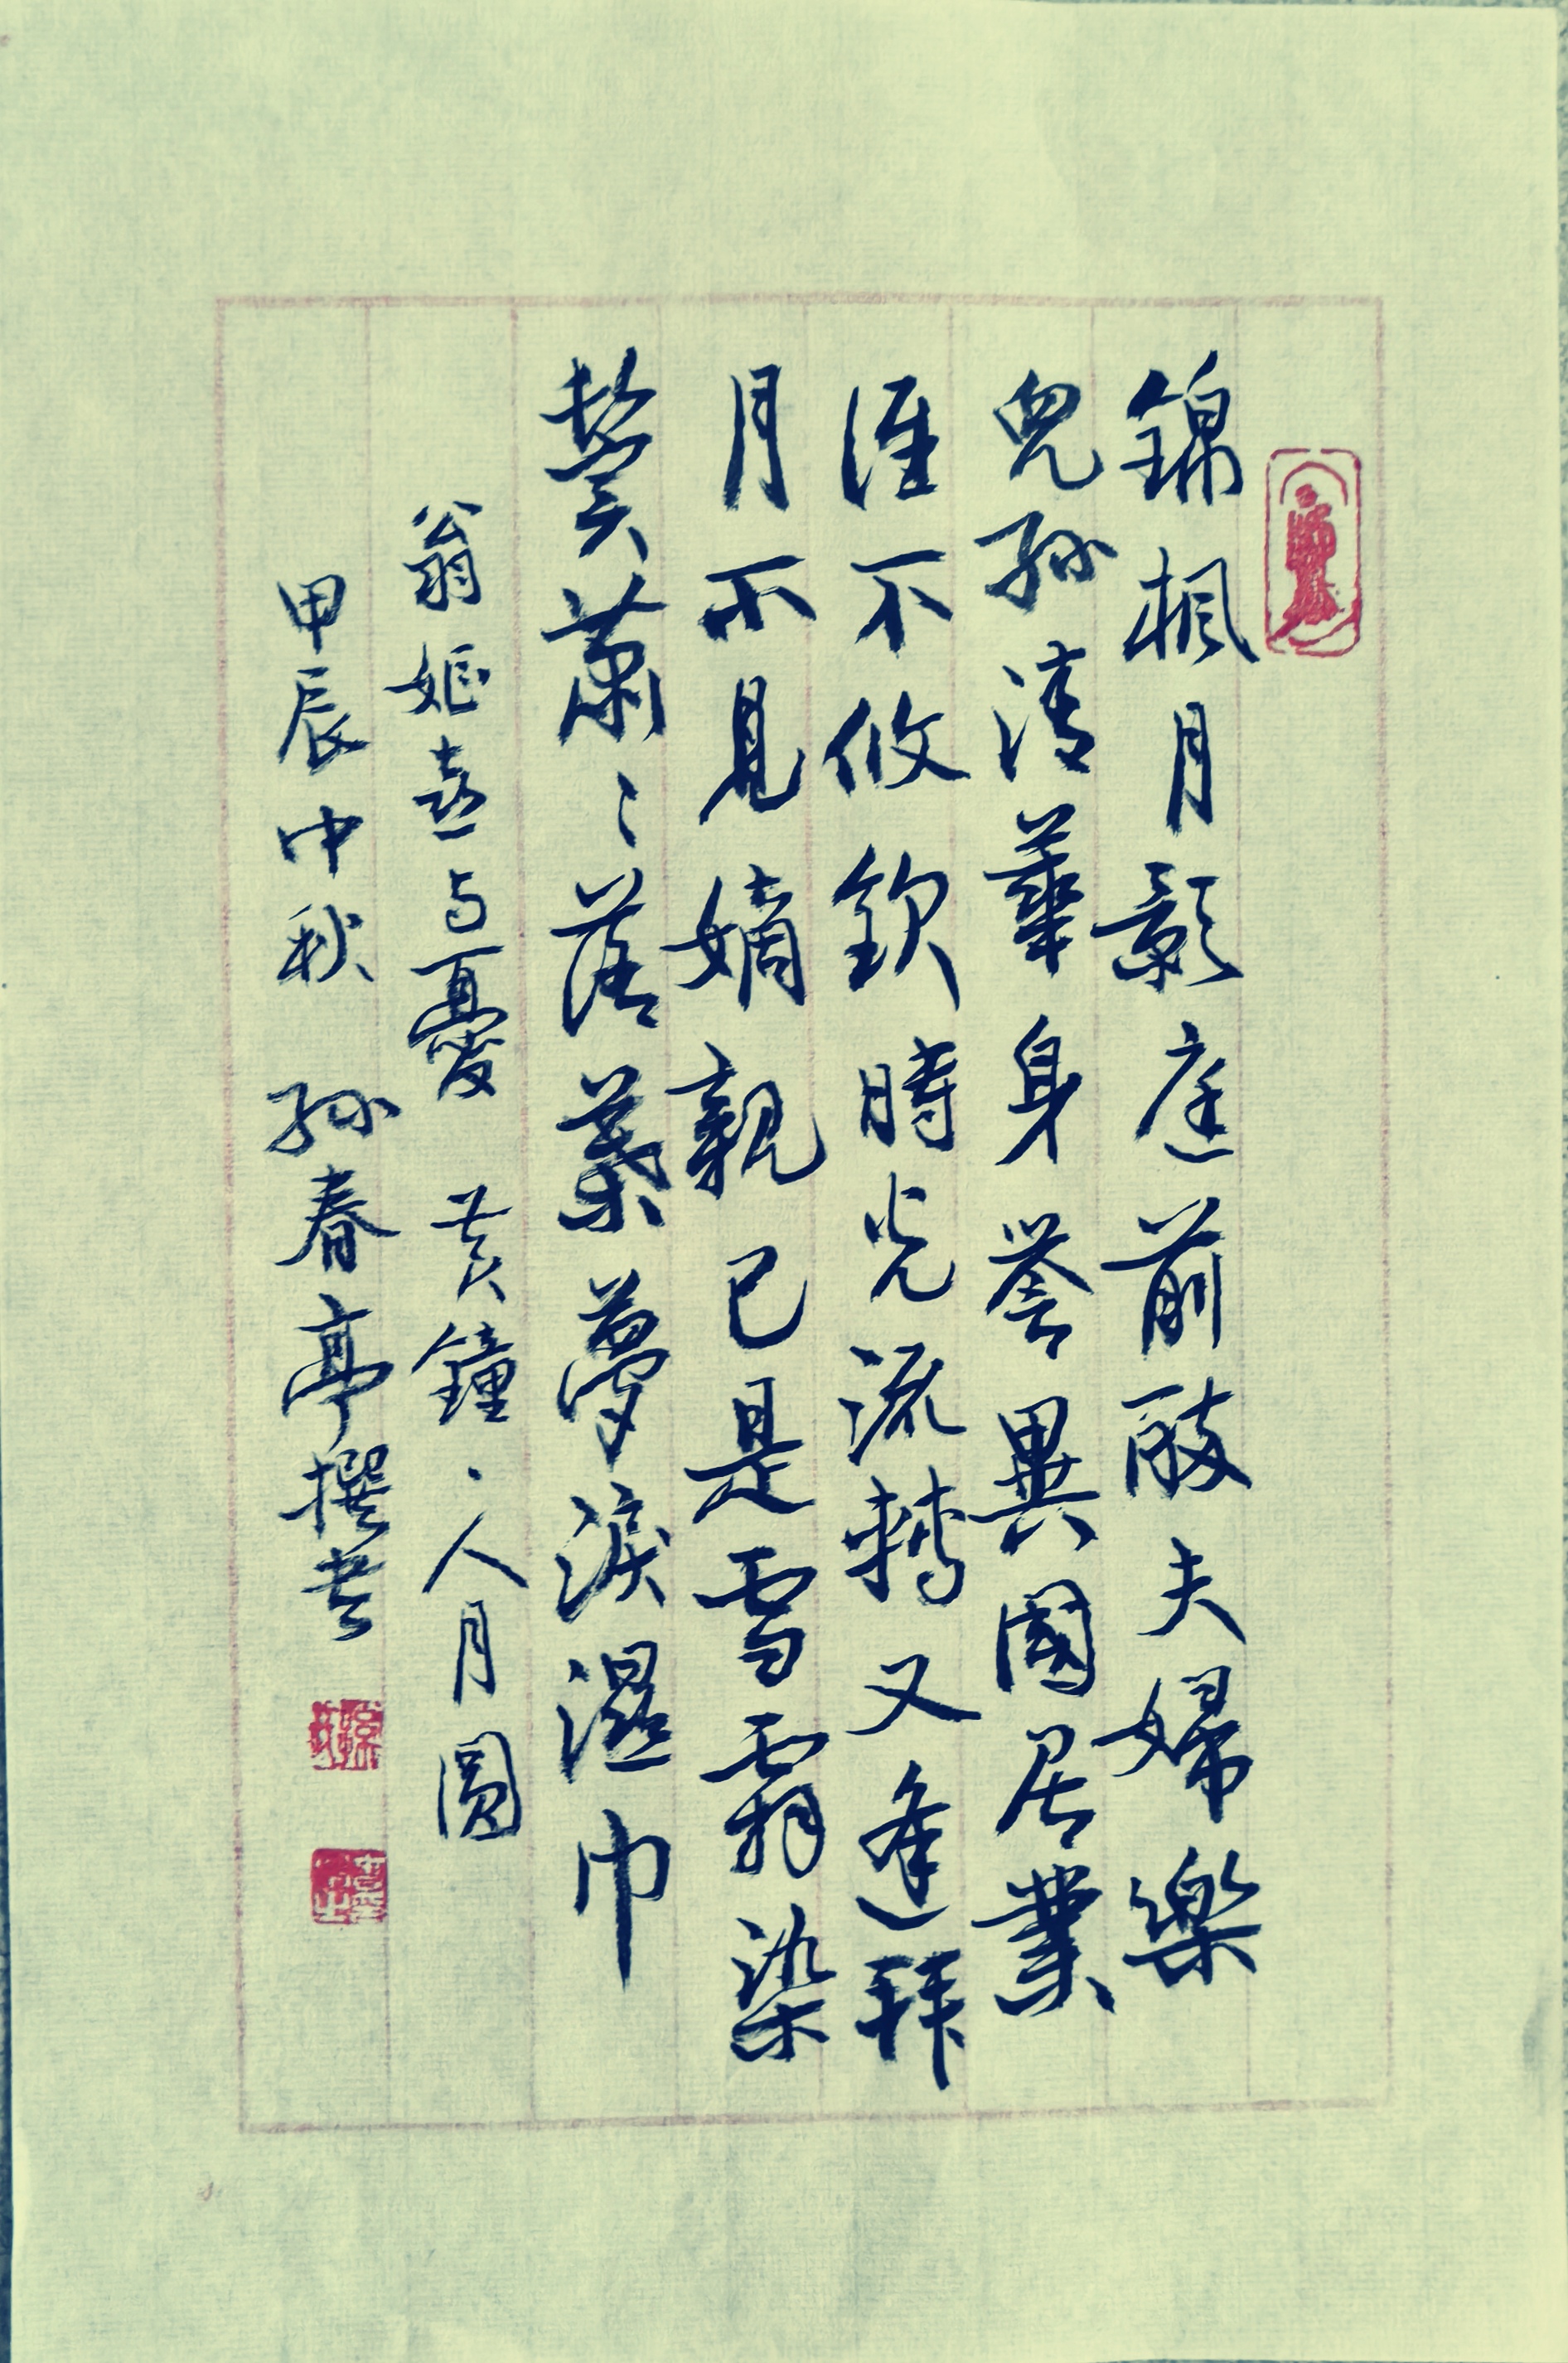 錦楓月影庭前夫婦樂
兒孫清華身譽異國居業
誰不攸欽時光流轉又逢拜
月不見嫡親已是雪霜染
鬢蕭〻落葉夢淚濕巾
翁嫗喜与憂 黄鐘·人月圓
甲辰中秋 孫春亭撰書